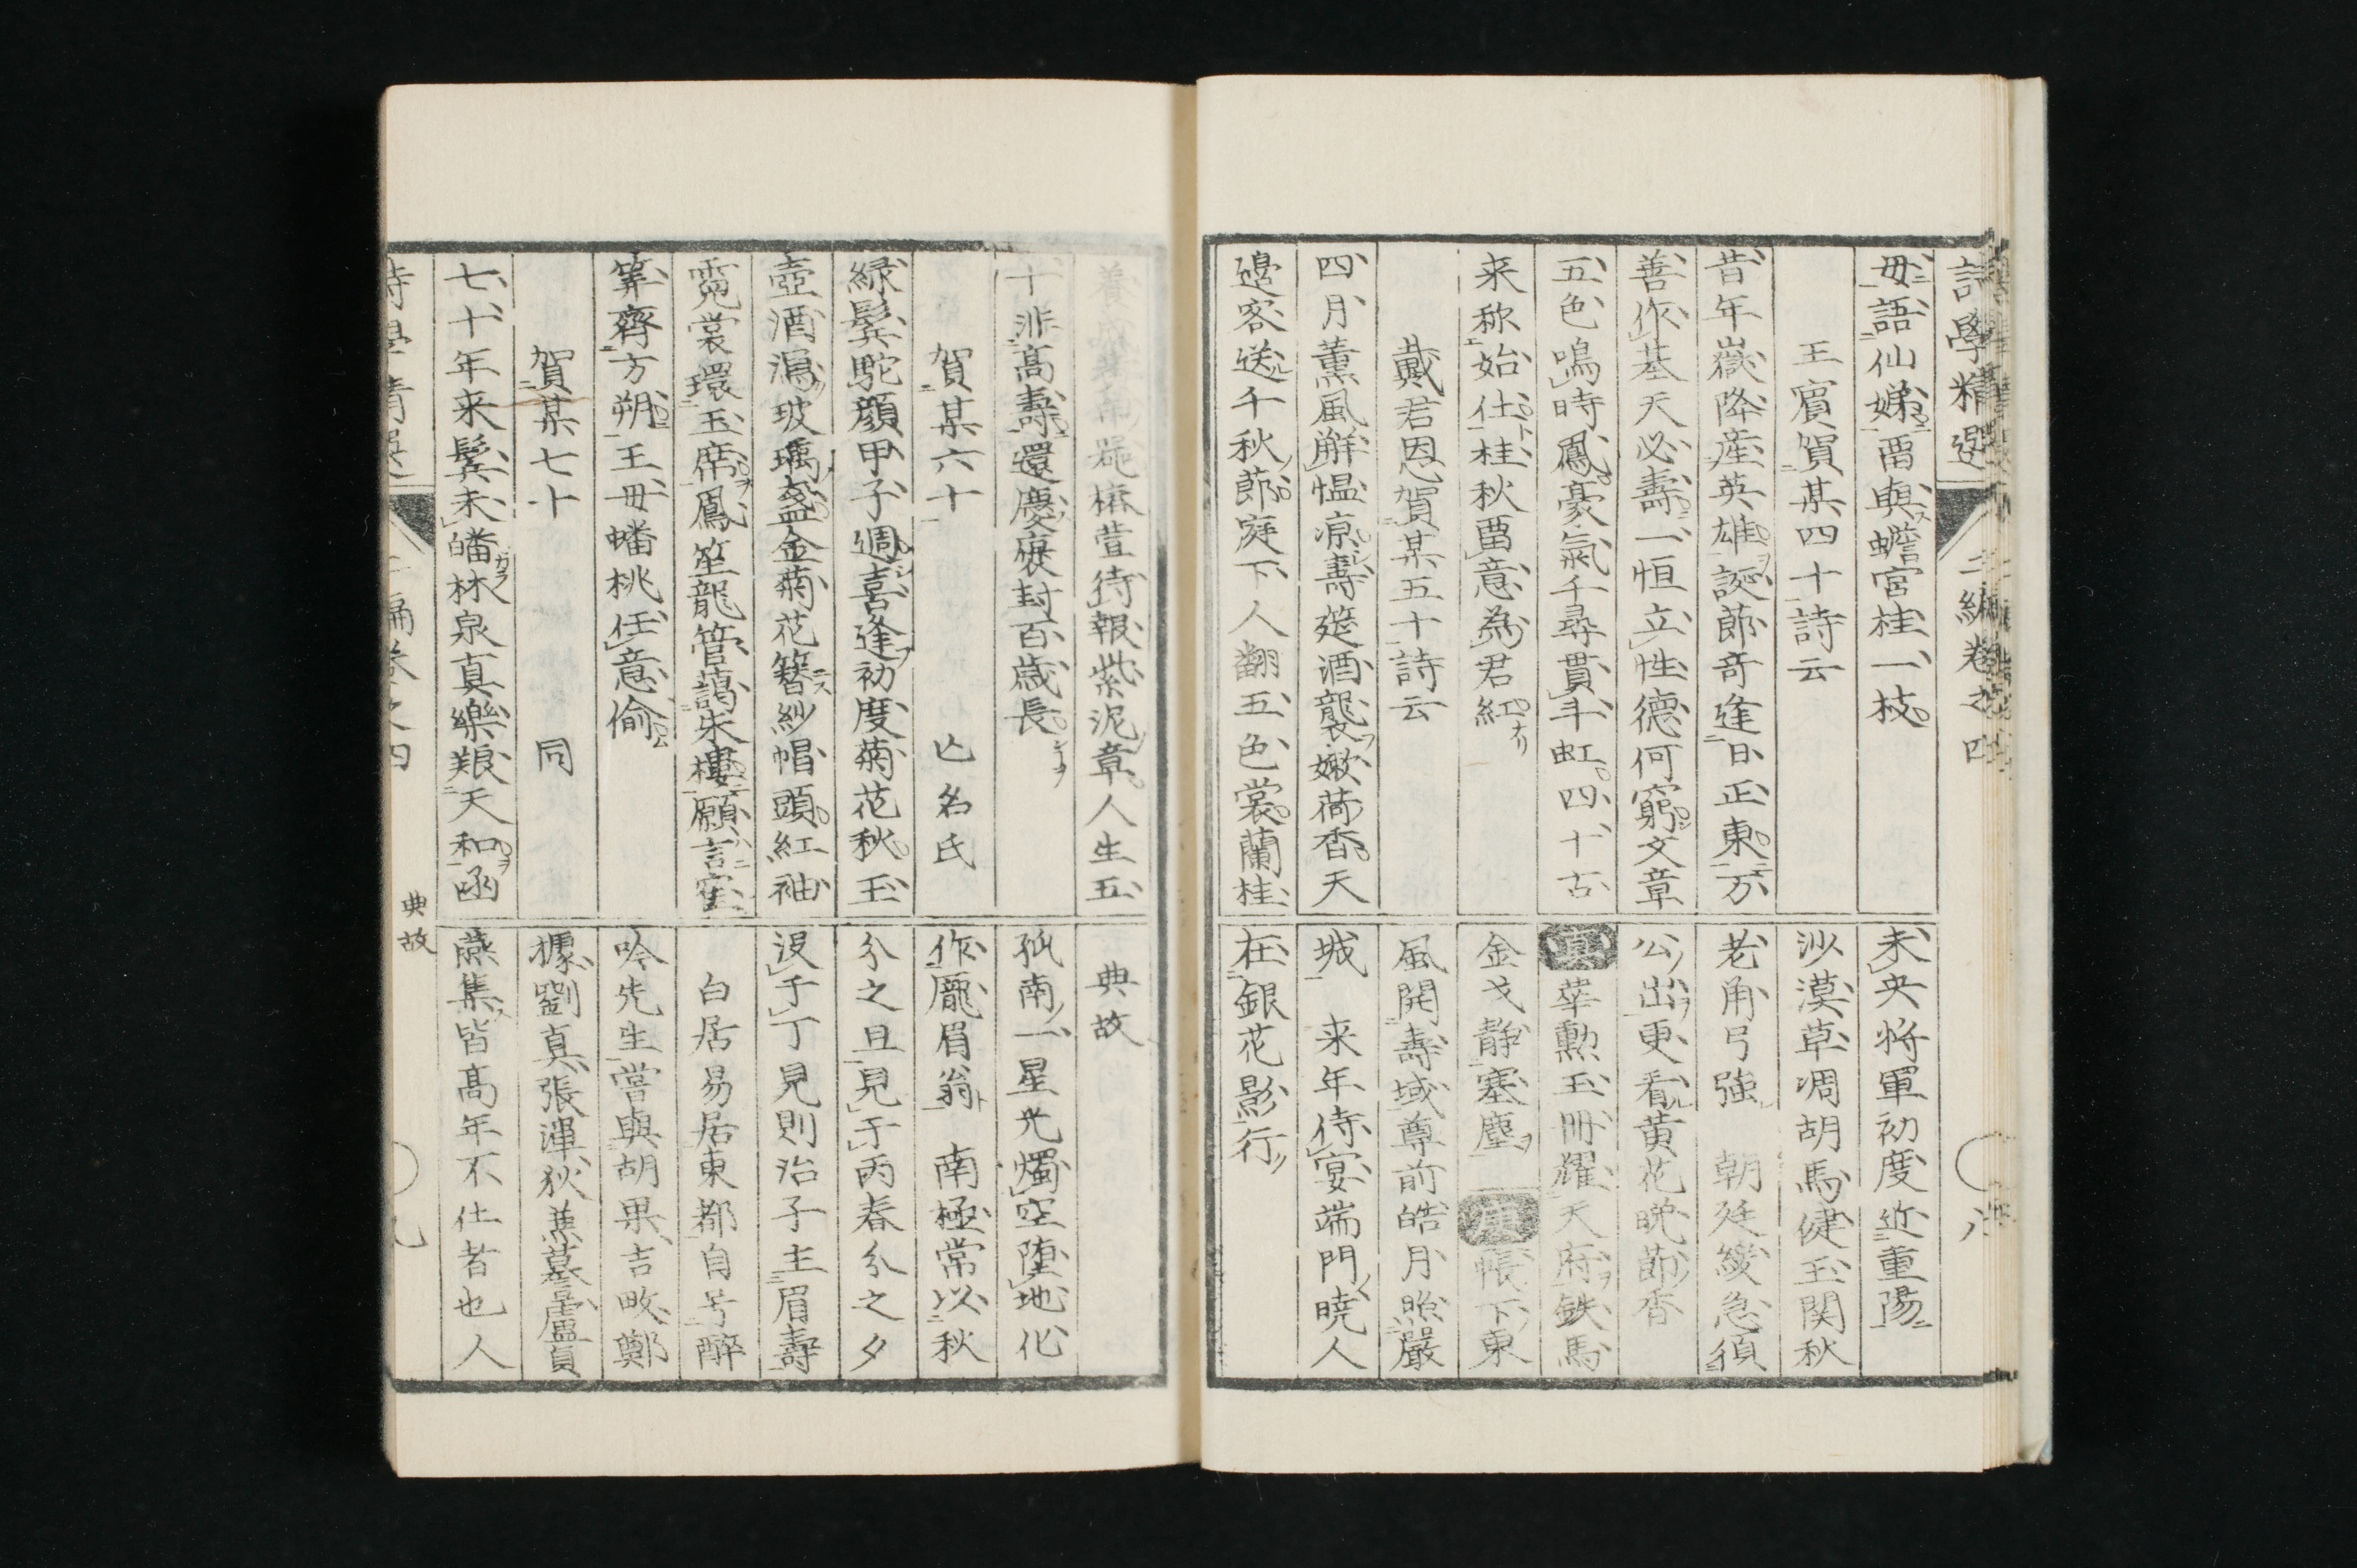 詩學精選 二編卷之四 八
毋語仙娣畱與蟾宮桂一枝
王賓賀某四十詩云
昔年嶽降産英雄誕節奇逢日正東万
善作基天必壽一恒立性德何窮文章
五色鳴時鳳豪氣千尋貫斗虹四十古
来称始仕桂秋畱意為君紅
戴君恩賀某五十詩云
四月薫風解愠凉壽筵酒襲嫩荷香天
邊客送千秋節庭下人翻五色裳蘭桂
未央将軍初度近重陽
沙漠草凋胡馬健玉関秋
老角弓強 朝廷緩急須
公出更看黄花晩節香
莘勲玉冊耀天府鉄馬
金戈静塞塵 帳下東
風開壽域尊前皓月照嚴
城 来年侍宴端門曉人
在銀花影行
萱待報紫泥章人生五
十非高壽還慶褒封百歳長
賀某六十 亾名氏
緑鬓駝顔甲子週喜逢初度菊花秋玉
壺酒瀉玻璃盞金菊花簪紗帽頭紅袖
霓裳環玉席鳳笙龍管謁朱樓願言
筭齊方朔王毋蟠桃任意偷
賀某七十 同
七十年来鬓未皤林泉真樂羪天和函
典故
弧南一星光燭空墮地化
作龐眉翁 南極常以秋
分之旦見于丙春分之夕
没于丁見則治子主眉壽
白居易居東都自号醉
吟先生嘗與胡果吉畋鄭
據劉真張渾狄蒹謩盧貞
燕集皆高年不仕者也人
典故 九